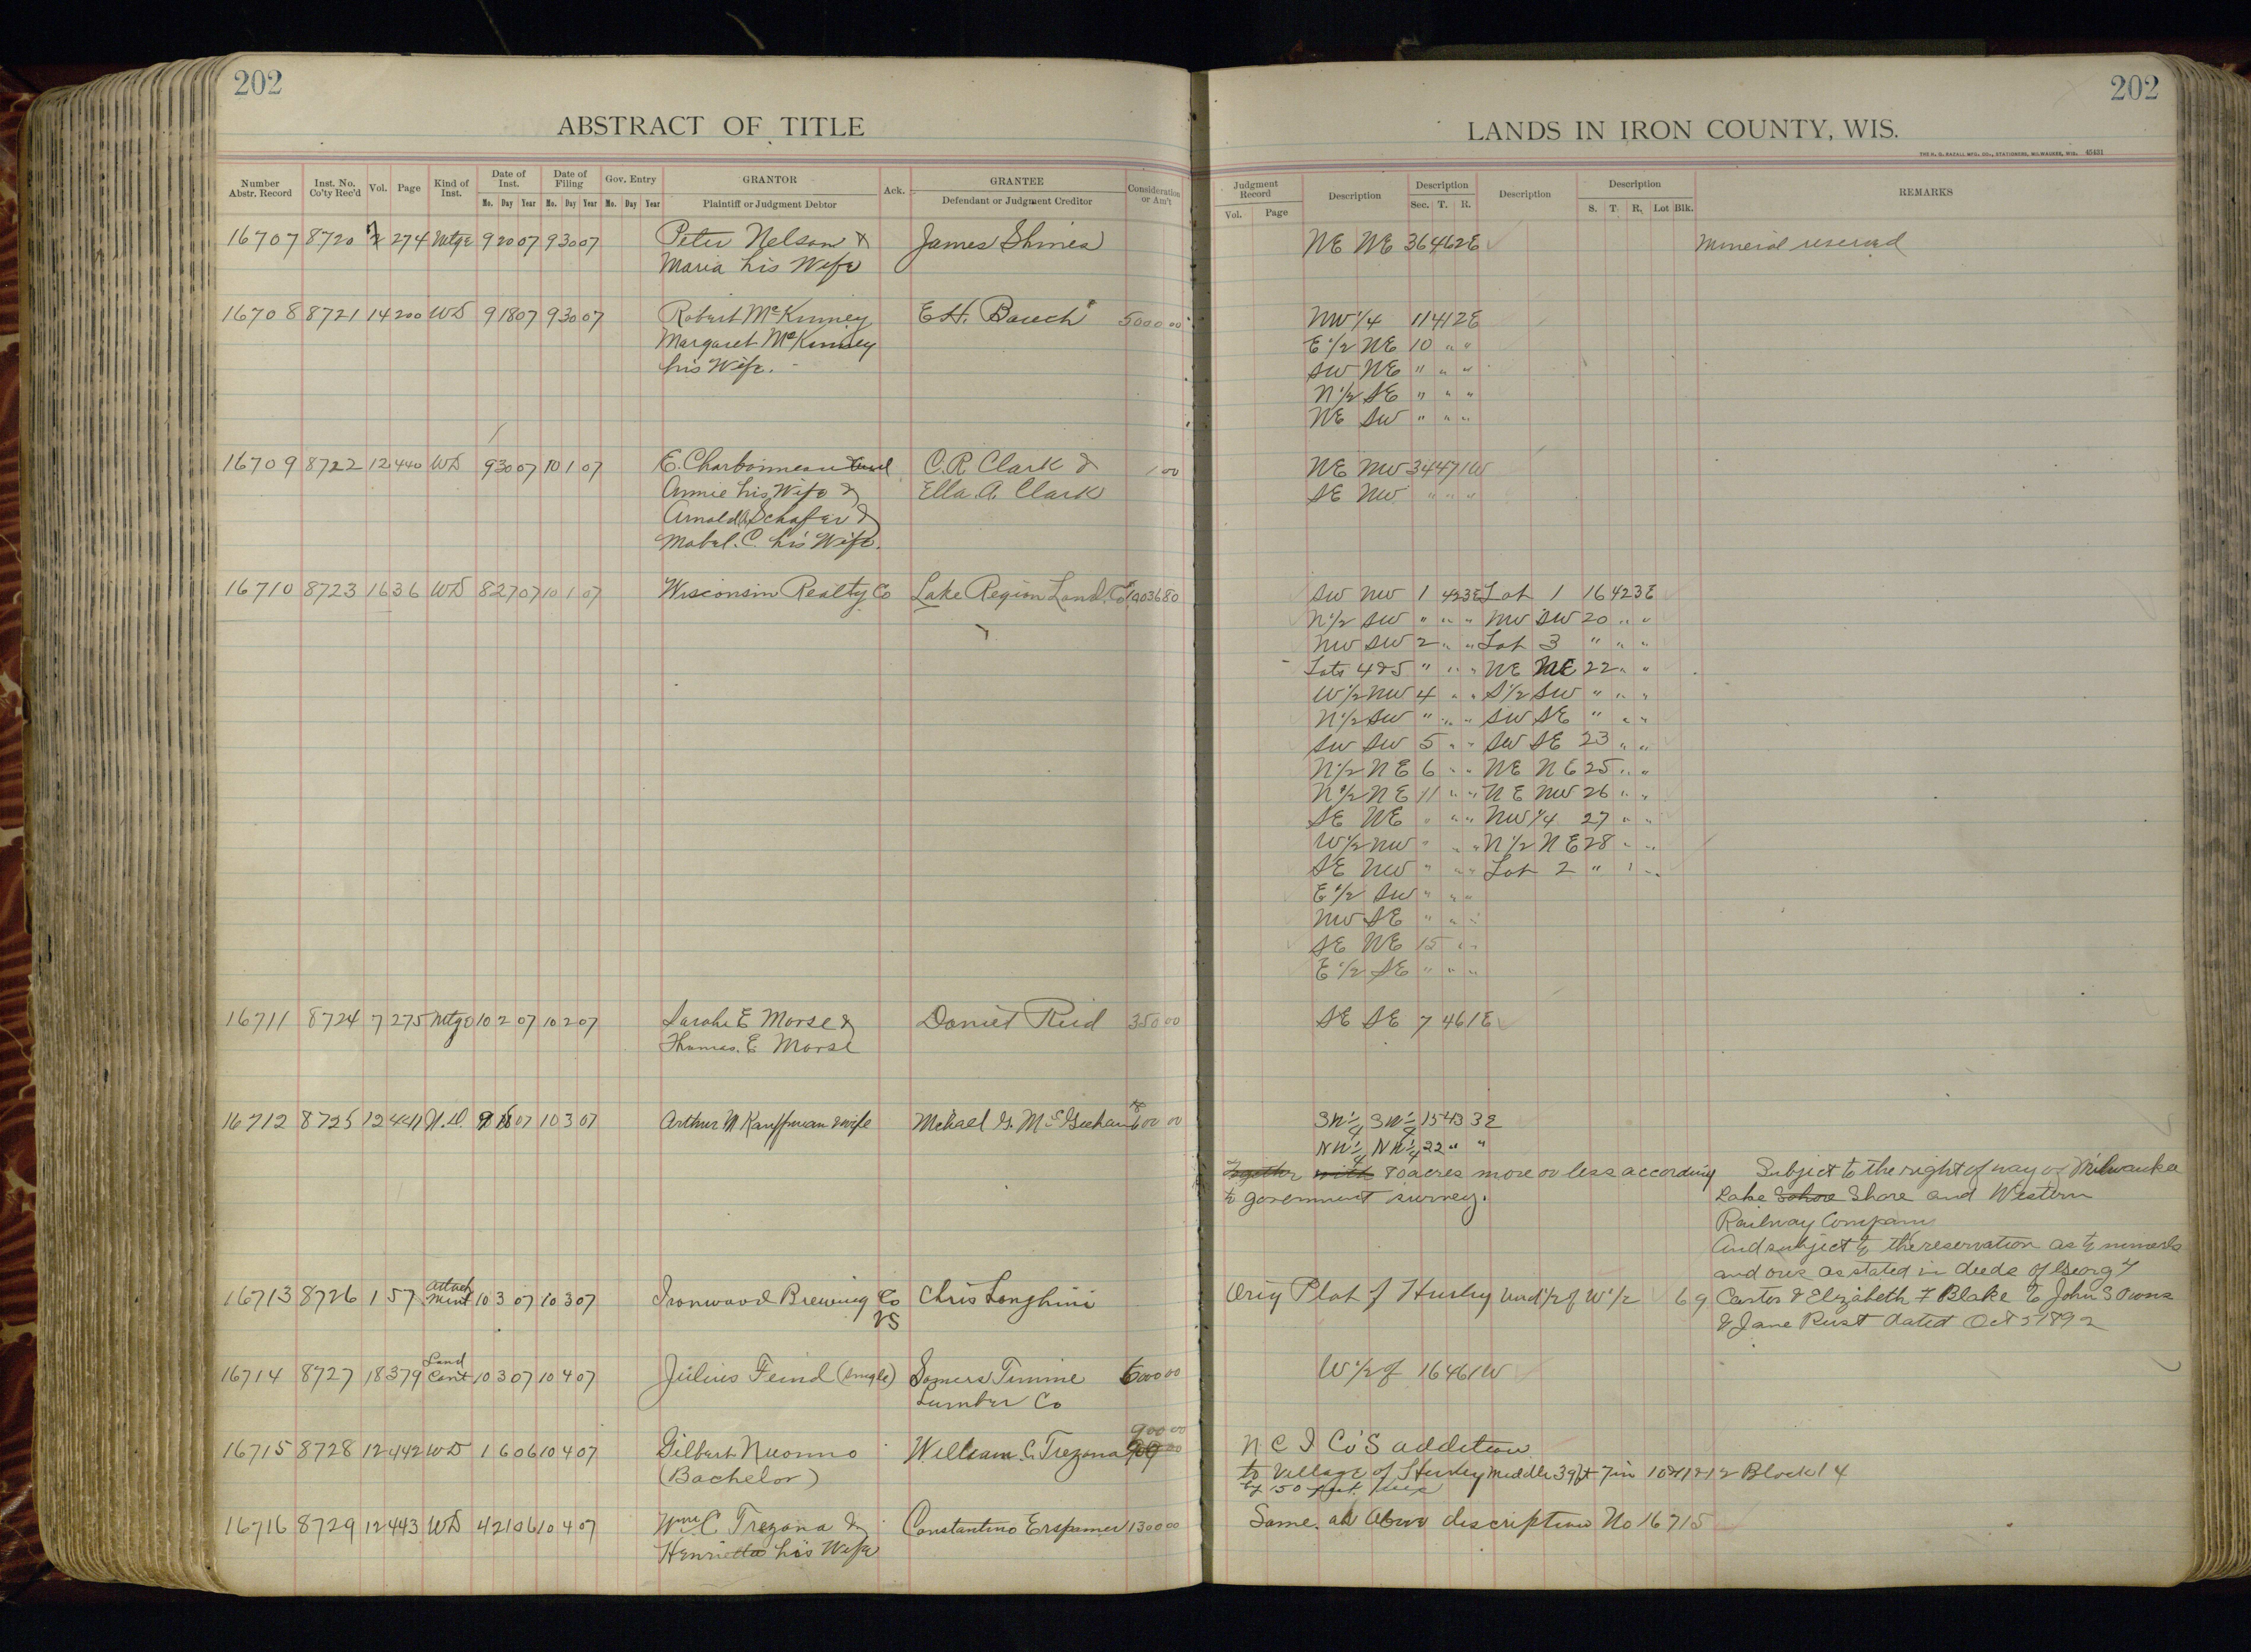 202
ABSTRACT OF TITLE
Number Abstr. Record Inst. No. Co'ty Rec'd Vol. Page Kind of Inst. Date of Inst. Date of Filing Gov. Entry GRANTOR Ack. GRANTEE Consideration or Am't
Mo. Day Year Mo. Day Year Mo. Day Year Plaintiff or Judgment Debtor Defendant or Judgment Creditor
16707 8720 7 274 Mtge 9 20 07 9 30 07 Peter Nelson & James Shines
Maria his Wife
16708 8721 14 200 WD 9 18 07 9 30 07 Robert McKinney E.H. Bauch 5000 00
Margaret McKinney
his Wife.
16709 8722 12 440 WD 9 30 07 10 1 07 E. Charbonneau and C.R. Clark & 1 00
Annie his Wife & Ella. A. Clark
Arnold A Schafer &
Mabel. C. his Wife.
16710 8723 16 36 WD 8 27 07 10 1 07 Wisconsin Realty Co Lake Region Land. Co 19036 80
16711 8724 7 275 Mtge 10 2 07 10 2 07 Sarah E Morse & Daniel Reid 350 00
Thomas. E Morse
16712 8725 12 441 W.D. 9 07 10 3 07 Arthur M Kauffman & wife Michael G. McGeehan 600 00
16713 8726 1 57 Attach Ment 10 3 07 10 3 07 Ironwood Brewing Co Chris Longhini
VS
16714 8727 18 379 Land Cont 10 3 07 10 4 07 Julius Feind (single) Somers Timme 6000 00
Lumber Co
900 00
16715 8728 12 442 WD 1 6 06 10 4 07 Gilbert Nuonno William. C. Trezona 900 00
(Bachelor)
16716 8729 12 443 WD 4 21 06 10 4 07 Wm C Trezona & Constantino Erspamer 1300 00
Henrietta his Wife
202
LANDS IN IRON COUNTY, WIS.
THE H. G. RAZALL MFG. CO., STATIONERS, MILWAUKEE, WIS. 45431
Judgment Record Description Description Description Description REMARKS
Vol. Page Sec. T. R. S. T. R. Lot Blk.
NE NE 36 46 2E Mineral reserved
NW 1/4 11 41 2E
E 1/2 NE 10 " "
SW NE " " "
N 1/2 SE " " "
NE SW " " "
NE NW 34 47 1W
SE NW " " "
SW NW 1 42 3E Lot 1 16 42 3E
N 1/2 SW " " " NW SW 20 " "
NW SW 2 " " Lot 3 " " "
Lots 4 & 5 " " " NE NE 22 " "
W 1/2 NW 4 " " S 1/2 SW " " "
N 1/2 SW " " " SW SE " " "
SW SW 5 " " SW SE 23 " "
N 1/2 NE 6 " " NE NE 25 " "
N 1/2 NE 11 " " NE NW 26 " "
SE NE " " " NW 1/4 27 " "
W 1/2 NW " " " N 1/2 NE 28 " "
SE NW " " " Lot 2 " " "
E 1/2 SW " " "
NW SE " " "
SE NE 15 " "
E 1/2 SE " " "
SE SE 7 46 1E
SW 1/4 SW 1/4 15 43 3E
NW 1/4 NW 1/4 22 " "
Together with 80 acres more or less according
to government survey.
Subject to the right of way of Milwaukee
Lake Sohore Shore and Western
Railway Company
And subject to the reservation as to minerals
and ores as stated in deeds of Georg T
Carter & Elizabeth F Blake to John S Owens
& Jane Rust dated Oct 5 1892
Orig Plat of Hurley Und 1/2 of W 1/2 6 9
W 1/2 of 16 46 1W
N C I Co'S addition
to Village of Hurley middle 39 ft 7 in 10 & 11 & 12 Block 14
by 150 feet deep
Same. as Above description No 16715